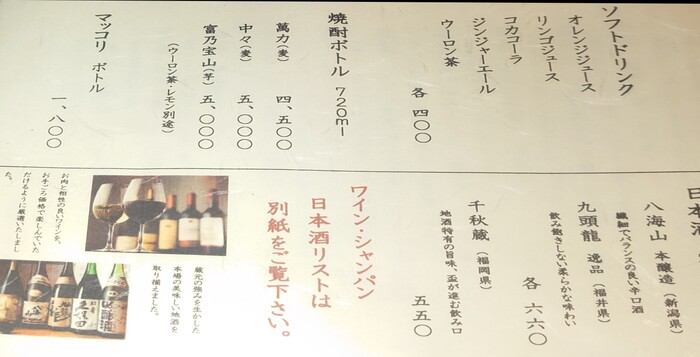 ソフトドリンク
オレンジジュース
リンゴジュース
コカコーラ
ジンジャーエール
ウーロン茶
各 四〇〇
焼酎ボトル 720ml
萬力(麦) 四、五〇〇
中々(麦) 五、〇〇〇
富乃宝山(芋) 五、〇〇〇
(ウーロン茶・レモン別途)
マッコリ ボトル 一、八〇〇
日本酒
八海山 本醸造(新潟県)
繊細でバランスの良い辛口酒
九頭龍 逸品(福井県)
飲み飽きしない柔らかな味わい
各 六六〇
千秋蔵(福岡県)
地酒特有の旨味、盃が進む飲み口
五五〇
ワイン・シャンパン
日本酒リストは
別紙をご覧下さい。
蔵元の強みを生かした
本場の美味しい地酒を
取り揃えました。
お肉と相性の良いワインを、
お手ごろ価格で楽しんでいた
だけるように厳選いたしまし
た。